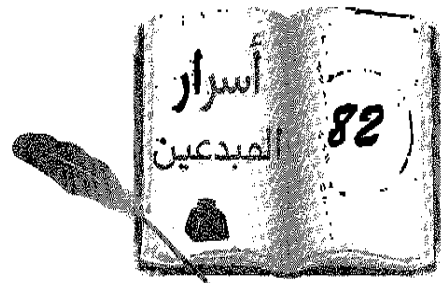 أسرار
المبدعين
82